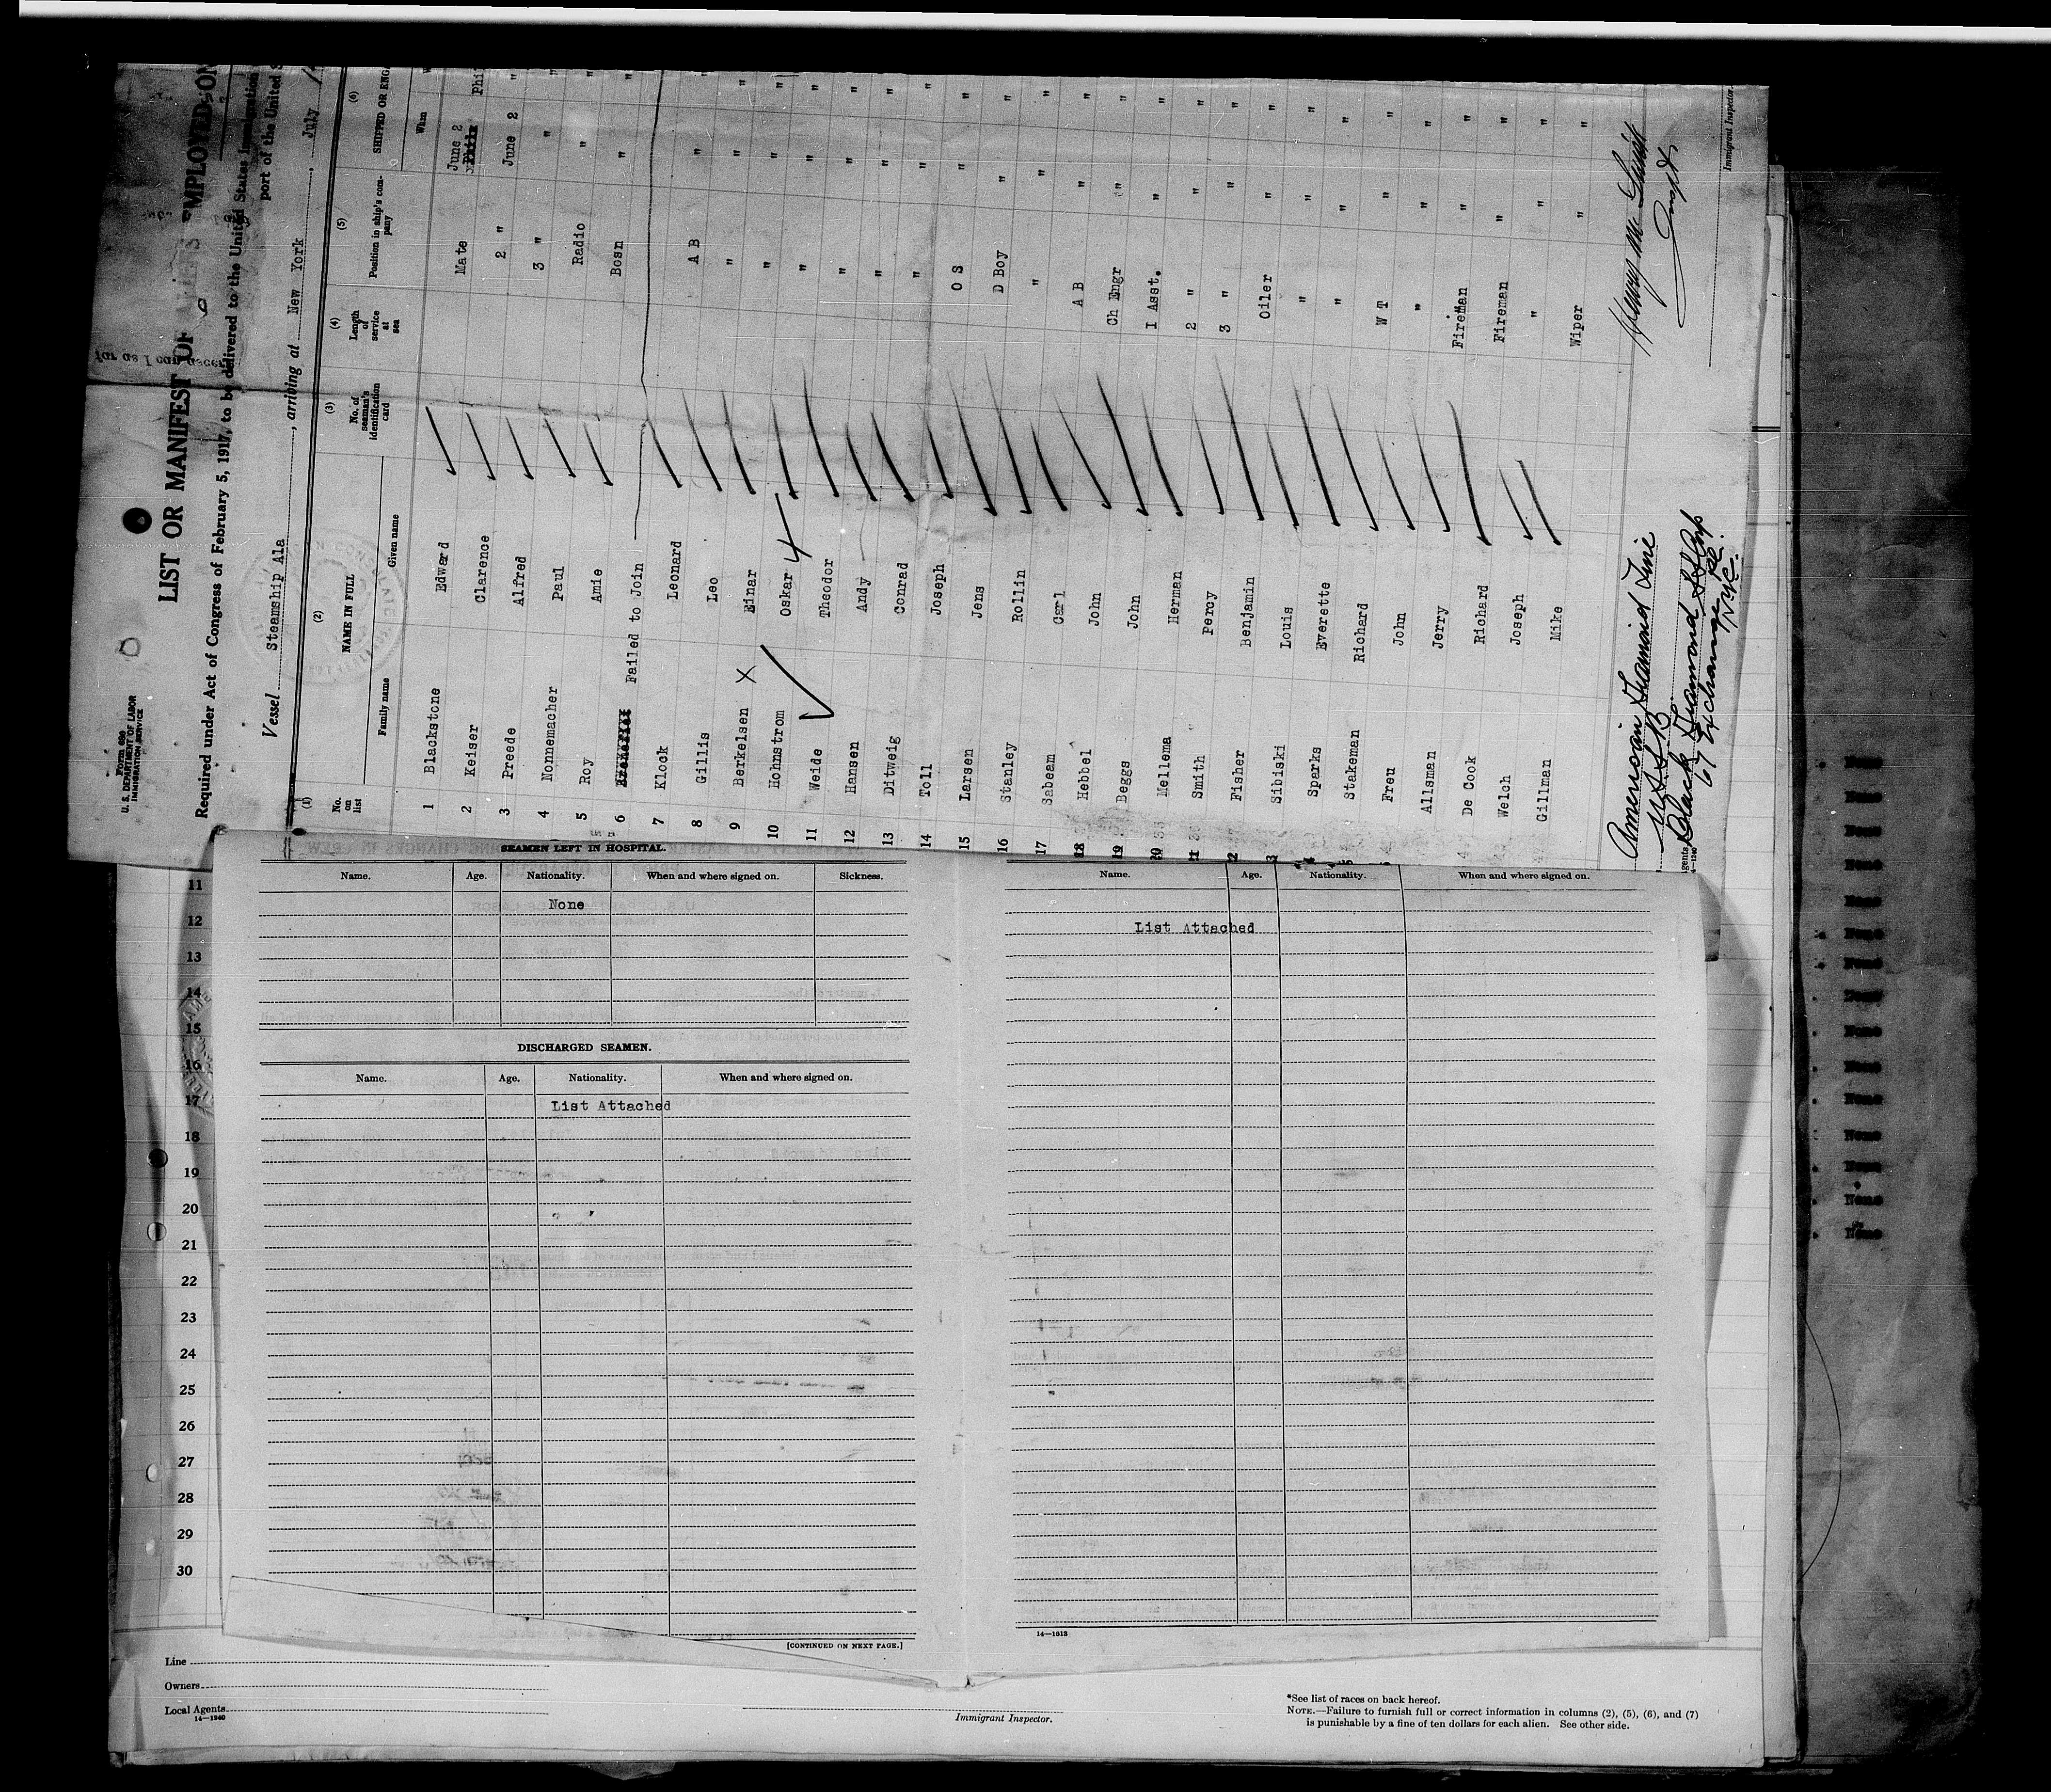 Form 680
U. S. DEPARTMENT OF LABOR
IMMIGRATION SERVICE
LIST OR MANIFEST OF EMPLOYED ON
Required under Act of Congress of February 5, 1917, to be delivered to the United States immigration
port of the United S
Vessel Steamship Ala , arriving at New York , July
(1) (2) (3) (4) (5) (6)
No. on list NAME IN FULL No. of seaman's identification card Length of service at sea Position in ship's company SHIPPED OR ENG
Family name Given name When
1 Blackstone Edward Mate June 2 Phil
2 Keiser Clarence 2 " June 2 "
3 Preede Alfred 3 " " "
4 Nonnemacher Paul Radio " "
5 Roy Amie Bosn " "
6 Failed to Join
7 Klock Leonard A B " "
8 Gillis Leo " " "
9 Berkelsen X Einar " " "
10 Hohnstrom Oskar " " "
11 Weide Theodor " " "
12 Hansen Andy " " "
13 Ditweig Conrad " " "
14 Toll Joseph O S " "
15 Larsen Jens D Boy " "
16 Stanley Rollin " " "
17 Sabeam Carl A B " "
18 Hebbel John Ch Engr " "
19 Beggs John I Asst. " "
20 Mellema Herman 2 " " "
21 Smith Percy 3 " " "
Fisher Benjamin Oiler " "
Sibiski Louis " " "
Sparks Everette " " "
Stakeman Richard W T " "
Freu John " " "
Allsman Jerry Fireman " "
De Cook Richard Fireman " "
Welch Joseph " " "
Gillman Mike Wiper " "
American Diamond Line
U S S B
Black Diamond S S Corp
67 Exchange Pl.
N.Y.C.
Immigrant Inspector.
SEAMEN LEFT IN HOSPITAL.
Name. Age. Nationality. When and where signed on. Sickness.
None
DISCHARGED SEAMEN.
Name. Age. Nationality. When and where signed on.
List Attached
[CONTINUED ON NEXT PAGE.]
Name. Age. Nationality. When and where signed on.
List Attached
14—1613
11
12
13
14
15
16
17
18
19
20
21
22
23
24
25
26
27
28
29
30
Line
Owners
Local Agents
14—1240
Immigrant Inspector.
*See list of races on back hereof.
NOTE.—Failure to furnish full or correct information in columns (2), (5), (6), and (7)
is punishable by a fine of ten dollars for each alien. See other side.
None
None
None
None